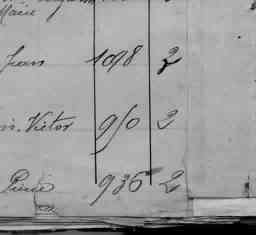 Marie
Jean 1098 2
Victor 950 2
Pierre 936 2